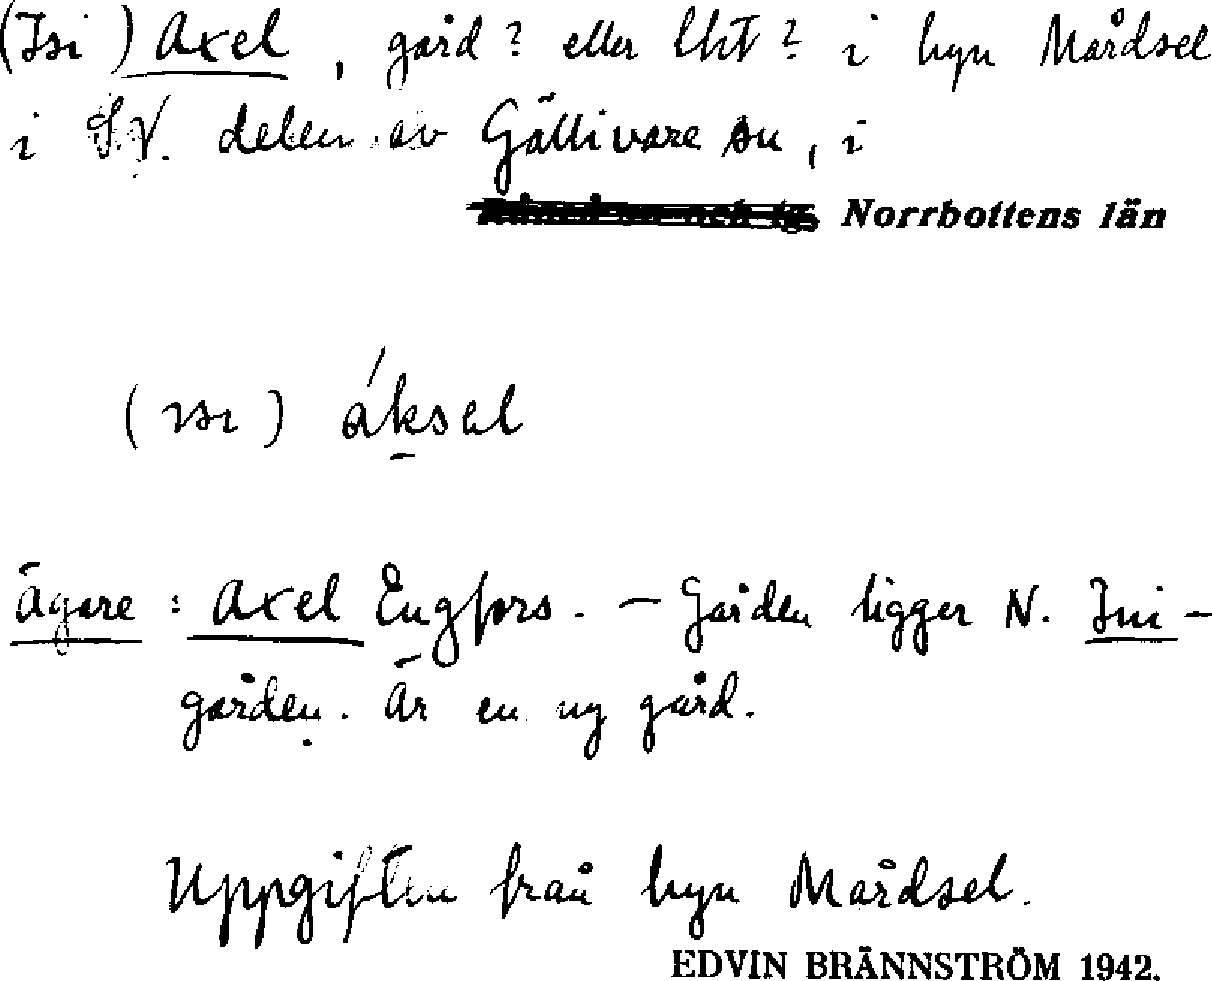 (Isi) Axel, gård? eller lht? i byn Mårdsel
i S.V. delen av Gällivare sn, i
Norrbottens län
(ısı) áksel
Ägare: Axel Engfors. – Gården ligger N. Ini-
gården. Är en ny gård.
Uppgiften från byn Mårdsel.
EDVIN BRÄNNSTRÖM 1942.